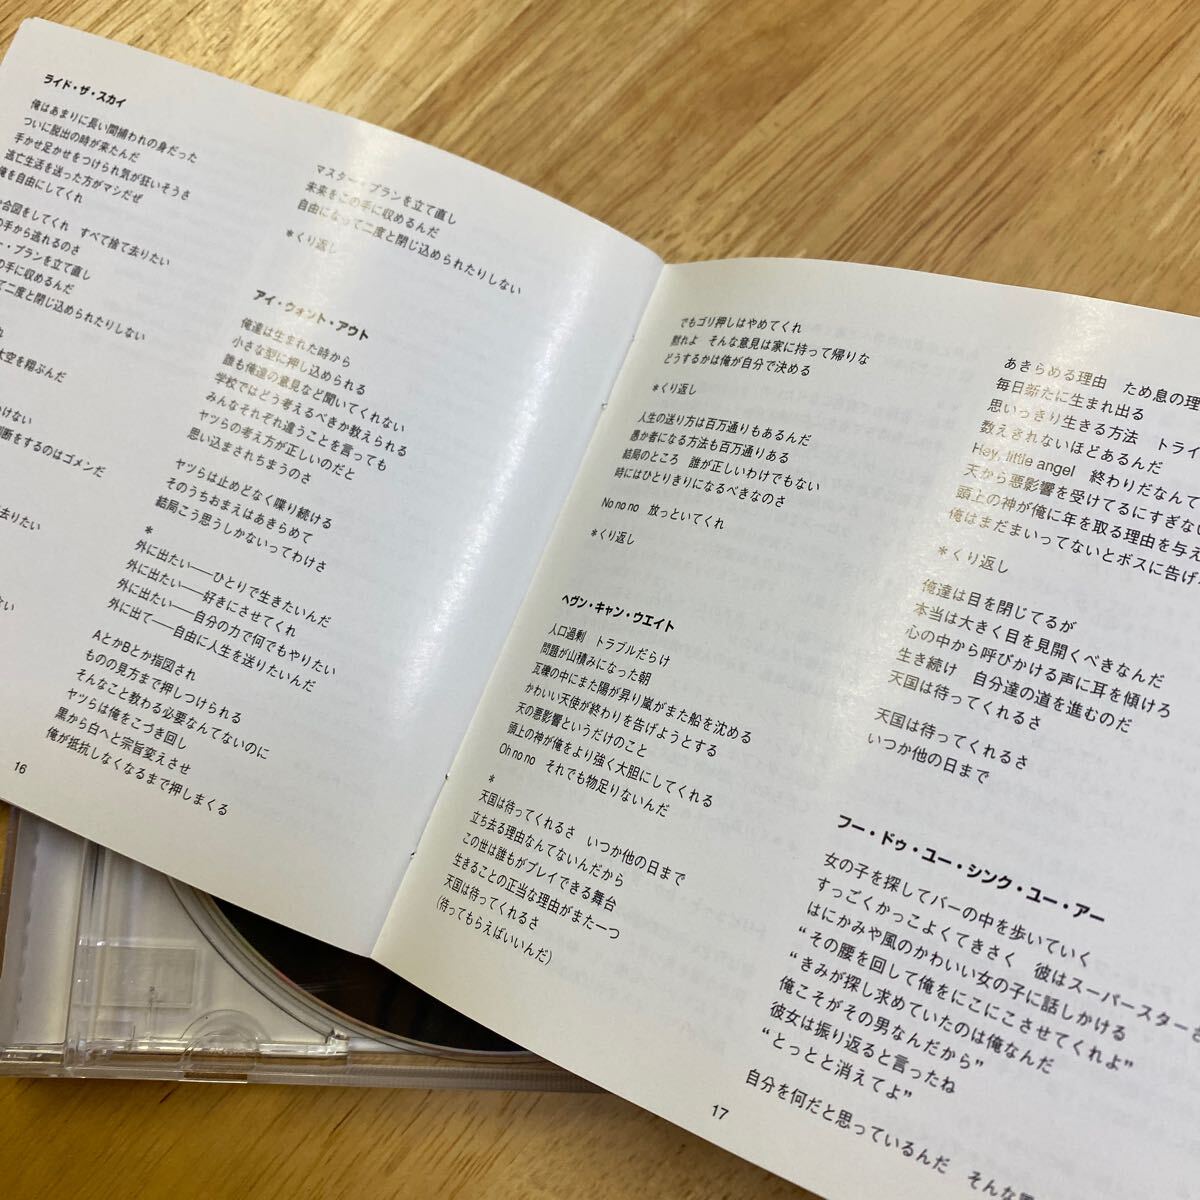 ライド・ザ・スカイ
俺はあまりに長い間捕われの身だった
ついに脱出の時が来たんだ
手かせ足かせをつけられ気が狂いそうさ
逃亡生活を送った方がマシだぜ
俺を自由にしてくれ
合図をしてくれ すべて捨て去りたい
の手から逃れるのさ
ー・プランを立て直し
の手に収めるんだ
て二度と閉じ込められたりしない
れ
大空を翔ぶんだ
けない
判断をするのはゴメンだ
去りたい
ない
16
マスター・プランを立て直し
未来をこの手に収めるんだ
自由になって二度と閉じ込められたりしない
*くり返し
アイ・ウォント・アウト
俺達は生まれた時から
小さな型に押し込められる
誰も俺達の意見など聞いてくれない
学校ではどう考えるべきか教えられる
みんなそれぞれ違うことを言っても
ヤツらの考え方が正しいのだと
思い込まされちまうのさ
ヤツらは止めどなく喋り続ける
そのうちおまえはあきらめて
結局こう思うしかないってわけさ
*
外に出たい──ひとりで生きたいんだ
外に出たい──好きにさせてくれ
外に出たい──自分の力で何でもやりたい
外に出て──自由に人生を送りたいんだ
AとかBとか指図され
ものの見方まで押しつけられる
そんなこと教わる必要なんてないのに
ヤツらは俺をこづき回し
黒から白へと宗旨変えさせ
俺が抵抗しなくなるまで押しまくる
でもゴリ押しはやめてくれ
黙れよ そんな意見は家に持って帰りな
どうするかは俺が自分で決める
*くり返し
人生の送り方は百万通りもあるんだ
愚か者になる方法も百万通りある
結局のところ 誰が正しいわけでもない
時にはひとりきりになるべきなのさ
No no no 放っといてくれ
*くり返し
ヘヴン・キャン・ウエイト
人口過剰 トラブルだらけ
問題が山積みになった朝
瓦礫の中にまた陽が昇り嵐がまた船を沈める
かわいい天使が終わりを告げようとする
天の悪影響というだけのこと
頭上の神が俺をより強く大胆にしてくれる
Oh no no それでも物足りないんだ
*
天国は待ってくれるさ いつか他の日まで
立ち去る理由なんてないんだから
この世は誰もがプレイできる舞台
生きることの正当な理由がまた一つ
天国は待ってくれるさ
(待ってもらえばいいんだ)
17
あきらめる理由 ため息の理
毎日新たに生まれ出る
思いっきり生きる方法 トライ
数えきれないほどあるんだ
Hey, little angel 終わりだなんて
天から悪影響を受けてるにすぎない
頭上の神が俺に年を取る理由を与え
俺はまだまいってないとボスに告げ
*くり返し
俺達は目を閉じてるが
本当は大きく目を見開くべきなんだ
心の中から呼びかける声に耳を傾けろ
生き続け 自分達の道を進むのだ
天国は待ってくれるさ
天国は待ってくれるさ
いつか他の日まで
フー・ドゥ・ユー・シンク・ユー・アー
女の子を探してバーの中を歩いていく
すっごくかっこよくてきさく 彼はスーパースターさ
はにかみや風のかわいい女の子に話しかける
“その腰を回して俺をにこにこさせてくれよ”
“きみが探し求めていたのは俺なんだ
俺こそがその男なんだから”
彼女は振り返ると言ったね
“とっとと消えてよ”
自分を何だと思っているんだ そんな